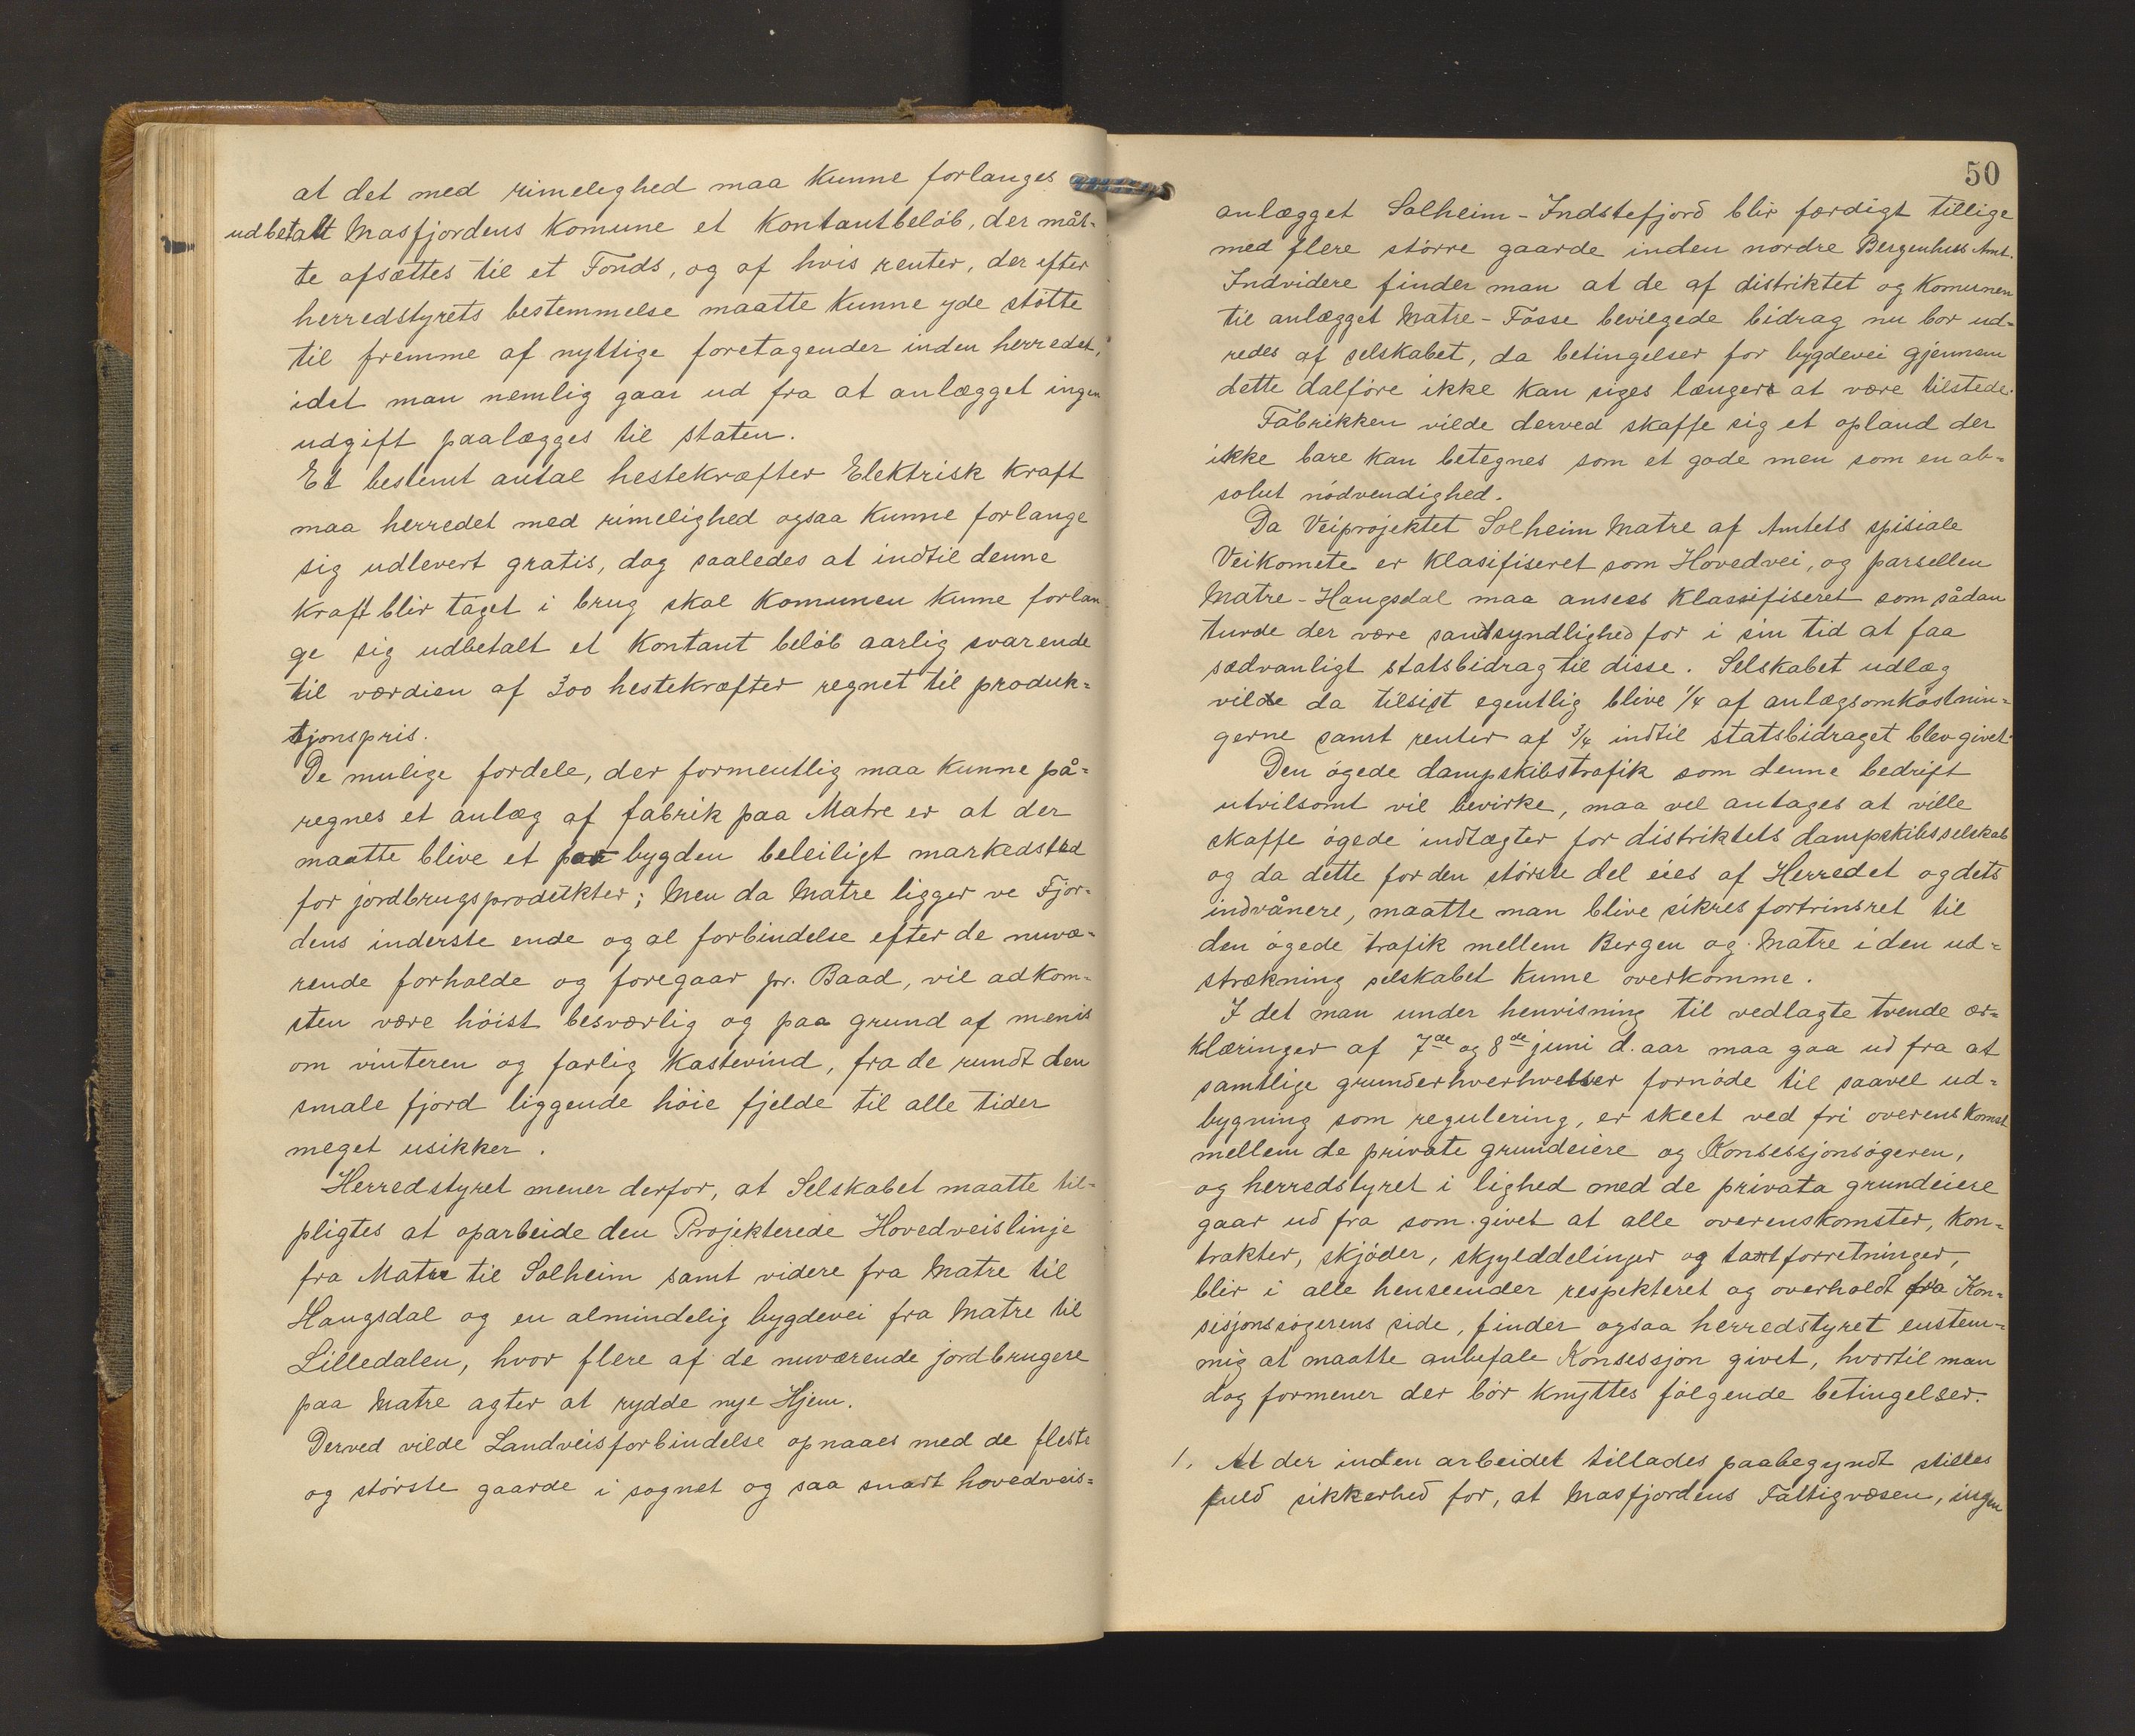 at det med rimelighed maa kunne forlanges
udbetalt Masfjordens Komune et Kontantbeløb, der måt-
te afsættes til et Fonds, og af hvis renter, der efter
herredstyrets bestemmelse maatte kunne yde støtte
til fremme af nyttige foretagender inden herredet,
idet man nemlig gaar ud fra at anlægget ingen
udgift paalægges til staten.
Et bestemt antal hestekræfter Elektrisk Kraft
maa herredet med rimelighed ogsaa kunne forlange
sig udlevert gratis, dog saaledes at indtil denne
Kraft blir taget i brug skal Komunen kunne forlan-
ge sig udbetalt et Kontant beløb aarlig svarende
til værdien af 300 hestekræfter regnet til produk-
tjonspris.
De mulige fordele, der formentlig maa kunne på-
regnes et anlæg af fabrik paa Matre er at der
maatte blive et for bygden beleiligt markedsted
for jordbrugsprodukter; Men da Matre ligger ve Fjor-
dens inderste ende og al forbindelse efter de nuvæ-
rende forholde og foregaar pr. Baad, vil adkom-
sten være høist besværlig og paa grund af menis
om vinteren og farlig Kastevind, fra de rundt den
smale fjord liggende høie fjelde til alle tider
meget usikker.
Herredstyret mener derfor, at Selskabet maatte til-
pligtes at oparbeide den Projekterede Hovedveislinje
fra Matre til Solheim samt videre fra Matre til
Haugsdal og en almindelig bygdevei fra Matre til
Lilledalen, hvor flere af de nuværende jordbrugere
paa Matre agter at rydde nye Hjem.
Derved vilde Landveisforbindelse opnaaes med de fleste
og største gaarde i sognet og saa snart hovedveis-
50
anlægget Solheim - Indstefjord blir færdigt tillige
med flere større gaarde inden nordre Bergenhus Amt.
Indvidere finder man at de af distriktet og Komunen
til anlægget Matre - Fosse bevilgede bidrag nu bør ud-
redes af selskabet, da betingelser for bygdevei gjennem
dette dalføre ikke kan siges længere at være tilstede.
Fabrikken vilde derved skaffe sig et opland der
ikke bare kan betegnes som et gode men som en ab-
solut nødvendighed.
Da Veiprojektet Solheim Matre af Amtets spisiale
Veikomete er Klasifiseret som Hovedvei, og parsellen
Matre - Haugsdal maa ansees Klassifiseret som sådan
turde der være sandsyndlighed for i sin tid at faa
sædvanligt statsbidrag til disse. Selskabet udlæg
vilde da tilsist egentlig blive 1/4 af anlægsomkostnin-
gerne samt renter af 3/4 indtil statsbidraget blev givet.
Den øgede dampskibstrafik som denne bedrift
utvilsomt vil bevirke, maa vel antages at ville
skaffe øgede indtægter for distriktets dampskibsselskab
og da dette for den største del eies af Herredet og dets
indvånere, maatte man blive sikres fortrinsret til
den øgede trafik mellem Bergen og Matre i den ud-
strækning selskabet kunne overkomme.
I det man under henvisning til vedlagte tvende ær-
klæringer af 7de og 8de juni d. aar maa gaa ud fra at
samtlige grunderhverhvelser fornøde til saavel ud-
bygning som regulering, er skeet ved fri overenskomst
mellem de private grundeiere og Konsessjonsøgeren,
og herredstyret i lighed med de privata grundeiere
gaar ud fra som givet at alle overenskomster, Kon-
trakter, skjøder, skjylddelinger og taxtforretninger,
blir i alle henseender respekteret og overholdt fra Kon-
sisjonssøgerens side, finder ogsaa herredstyret enstem-
mig at maatte anbefale Konsessjon givet, hvortil man
dog formener der bør knyttes følgende betingelser.
1. At der inden arbeidet tillades paabegyndt stilles
fuld sikkerhed for, at Masfjordens Fattigvæsen, ingen